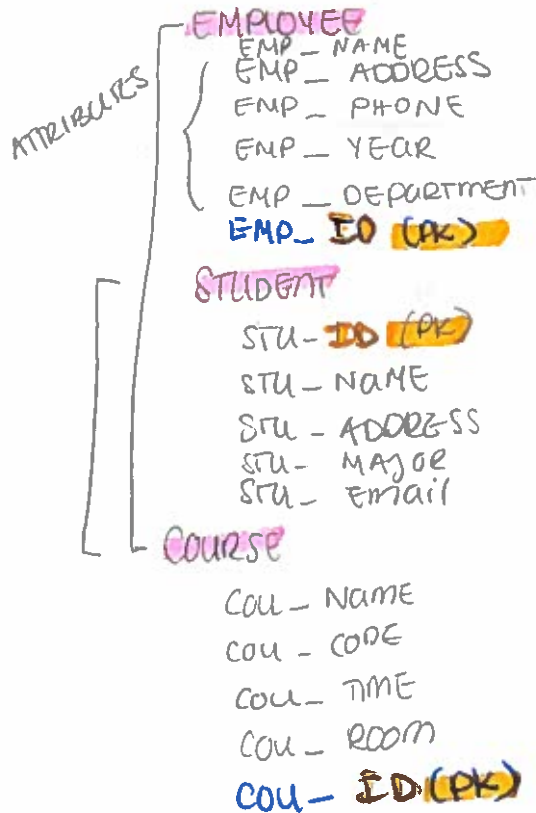 EMPLOYEE
ATTRIBUTES
EMP_NAME
EMP_ADDRESS
EMP_PHONE
EMP_YEAR
EMP_DEPARTMENT
EMP_ID (PK)
STUDENT
STU-ID (PK)
STU-NAME
STU-ADDRESS
STU-MAJOR
STU_Email
COURSE
COU_NAME
COU-CODE
COU_TIME
COU_ROOM
COU-ID (PK)